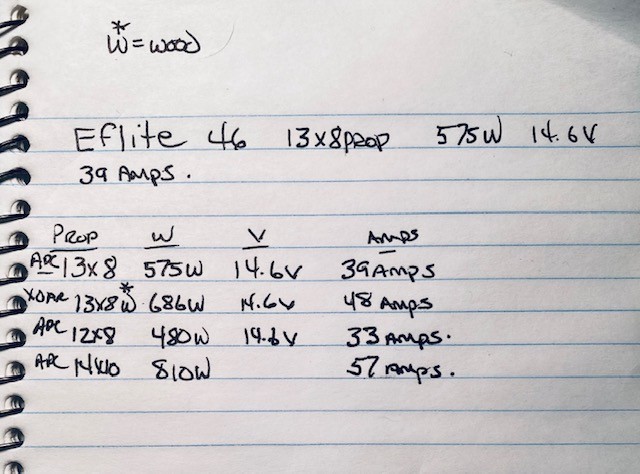 *
W = WOOD
Eflite 46 13x8 PROP 575W 14.6V
39 AMPS.
PROP W V AMPS
APC 13x8 575W 14.6V 39 AMPS
XOAR 13x8 W* 686W 14.6V 48 AMPS
APC 12x8 480W 14.6V 33 AMPS.
APC 14x10 810W 57 AMPS.